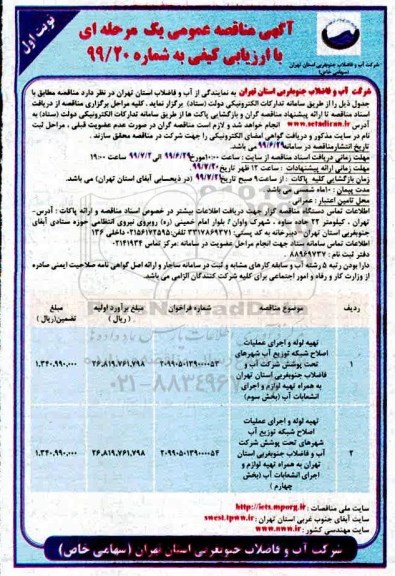 نوبت اول
آگهی مناقصه عمومی یک مرحله ای
با ارزیابی کیفی به شماره ۹۹/۲۰
شرکت آب و فاضلاب جنوبغربی استان تهران
(سهامی خاص)
شرکت آب و فاضلاب جنوبغربی استان تهران به نمایندگی از آب و فاضلاب استان تهران در نظر دارد مناقصه مطابق با
جدول ذیل را از طریق سامانه تدارکات الکترونیکی دولت (ستاد) برگزار نماید. کلیه مراحل برگزاری مناقصه از دریافت
اسناد مناقصه تا ارائه پیشنهاد مناقصه گران و بازگشایی پاکت ها از طریق سامانه تدارکات الکترونیکی دولت (ستاد) به
آدرس www.setadiran.ir انجام خواهد شد و لازم است مناقصه گران در صورت عدم عضویت قبلی، مراحل ثبت
نام در سایت مذکور و دریافت گواهی امضای الکترونیکی را جهت شرکت در مناقصه محقق سازند.
تاریخ انتشار مناقصه در سامانه ۹۹/۶/۲۹ می باشد.
مهلت زمانی دریافت اسناد مناقصه از سایت: ساعت ۱۰:۰۰ مورخ ۹۹/۶/۲۹ الی ۹۹/۷/۲ ساعت ۱۹:۰۰
مهلت زمانی ارائه پیشنهادات: ساعت ۱۲ ظهر تاریخ ۹۹/۷/۲۰
زمان بازگشایی کلیه پاکات: از ساعت ۹ صبح تاریخ ۹۹/۷/۲۱ (در ذیحسابی آبفای استان تهران) می باشد.
مدت پیمان: ۱۰ ماه شمسی می باشد.
محل تامین اعتبار: عمرانی
اطلاعات تماس دستگاه مناقصه گزار جهت دریافت اطلاعات بیشتر در خصوص اسناد مناقصه و ارائه پاکات: آدرس-
تهران، کیلومتر ۲۲ جاده ساوه، شهرک واوان، بلوار امام خمینی (ره) روبروی نیروی انتظامی حوزه ستادی آبفای
جنوبغربی استان تهران- دبیرخانه به کد پستی: ۳۳۱۷۸۶۹۳۷۱ تلفن: ۰۲۱۵۶۱۷۲۵۹۵ داخلی ۱۳۶
اطلاعات تماس سامانه ستاد جهت انجام مراحل عضویت در سامانه: مرکز تماس ۰۲۱۴۱۹۳۴
دفتر ثبت نام: ۸۸۹۶۹۷۳۷
دارا بودن رتبه ۵ رشته آب و سابقه کارهای مشابه و ثبت در سامانه ساجار و ارائه اصل گواهی نامه صلاحیت ایمنی صادره
از وزارت کار و رفاه و امور اجتماعی برای کلیه شرکت کنندگان الزامی می باشد.
ردیف
موضوع مناقصه
شماره فراخوان
مبلغ برآورد اولیه (ریال)
مبلغ تضمین(ریال)
۱
تهیه لوله و اجرای عملیات
اصلاح شبکه توزیع آب شهرهای
تحت پوشش شرکت آب و
فاضلاب جنوبغربی استان تهران
به همراه تهیه لوازم و اجرای
انشعابات آب (بخش سوم)
۲۰۹۹۰۵۰۱۳۹۰۰۰۰۵۳
۲۶،۸۱۹،۷۶۱،۷۹۸
۱،۳۴۰،۹۹۰،۰۰۰
۲
تهیه لوله و اجرای عملیات
اصلاح شبکه توزیع آب
شهرهای تحت پوشش شرکت
آب و فاضلاب جنوبغربی استان
تهران به همراه تهیه لوازم و
اجرای انشعابات آب (بخش
چهارم)
۲۰۹۹۰۵۰۱۳۹۰۰۰۰۵۴
۲۶،۸۱۹،۷۶۱،۷۹۸
۱،۳۴۰،۹۹۰،۰۰۰
۰۲۱-۸۸۳۴۹۶۷۰
سایت ملی مناقصات: http://iets.mporg.ir
سایت آبفای جنوب غربی استان تهران: swest.tpww.ir
سایت مهندسی کشور: www.nww.ir
شرکت آب و فاضلاب جنوبغربی استان تهران (سهامی خاص)